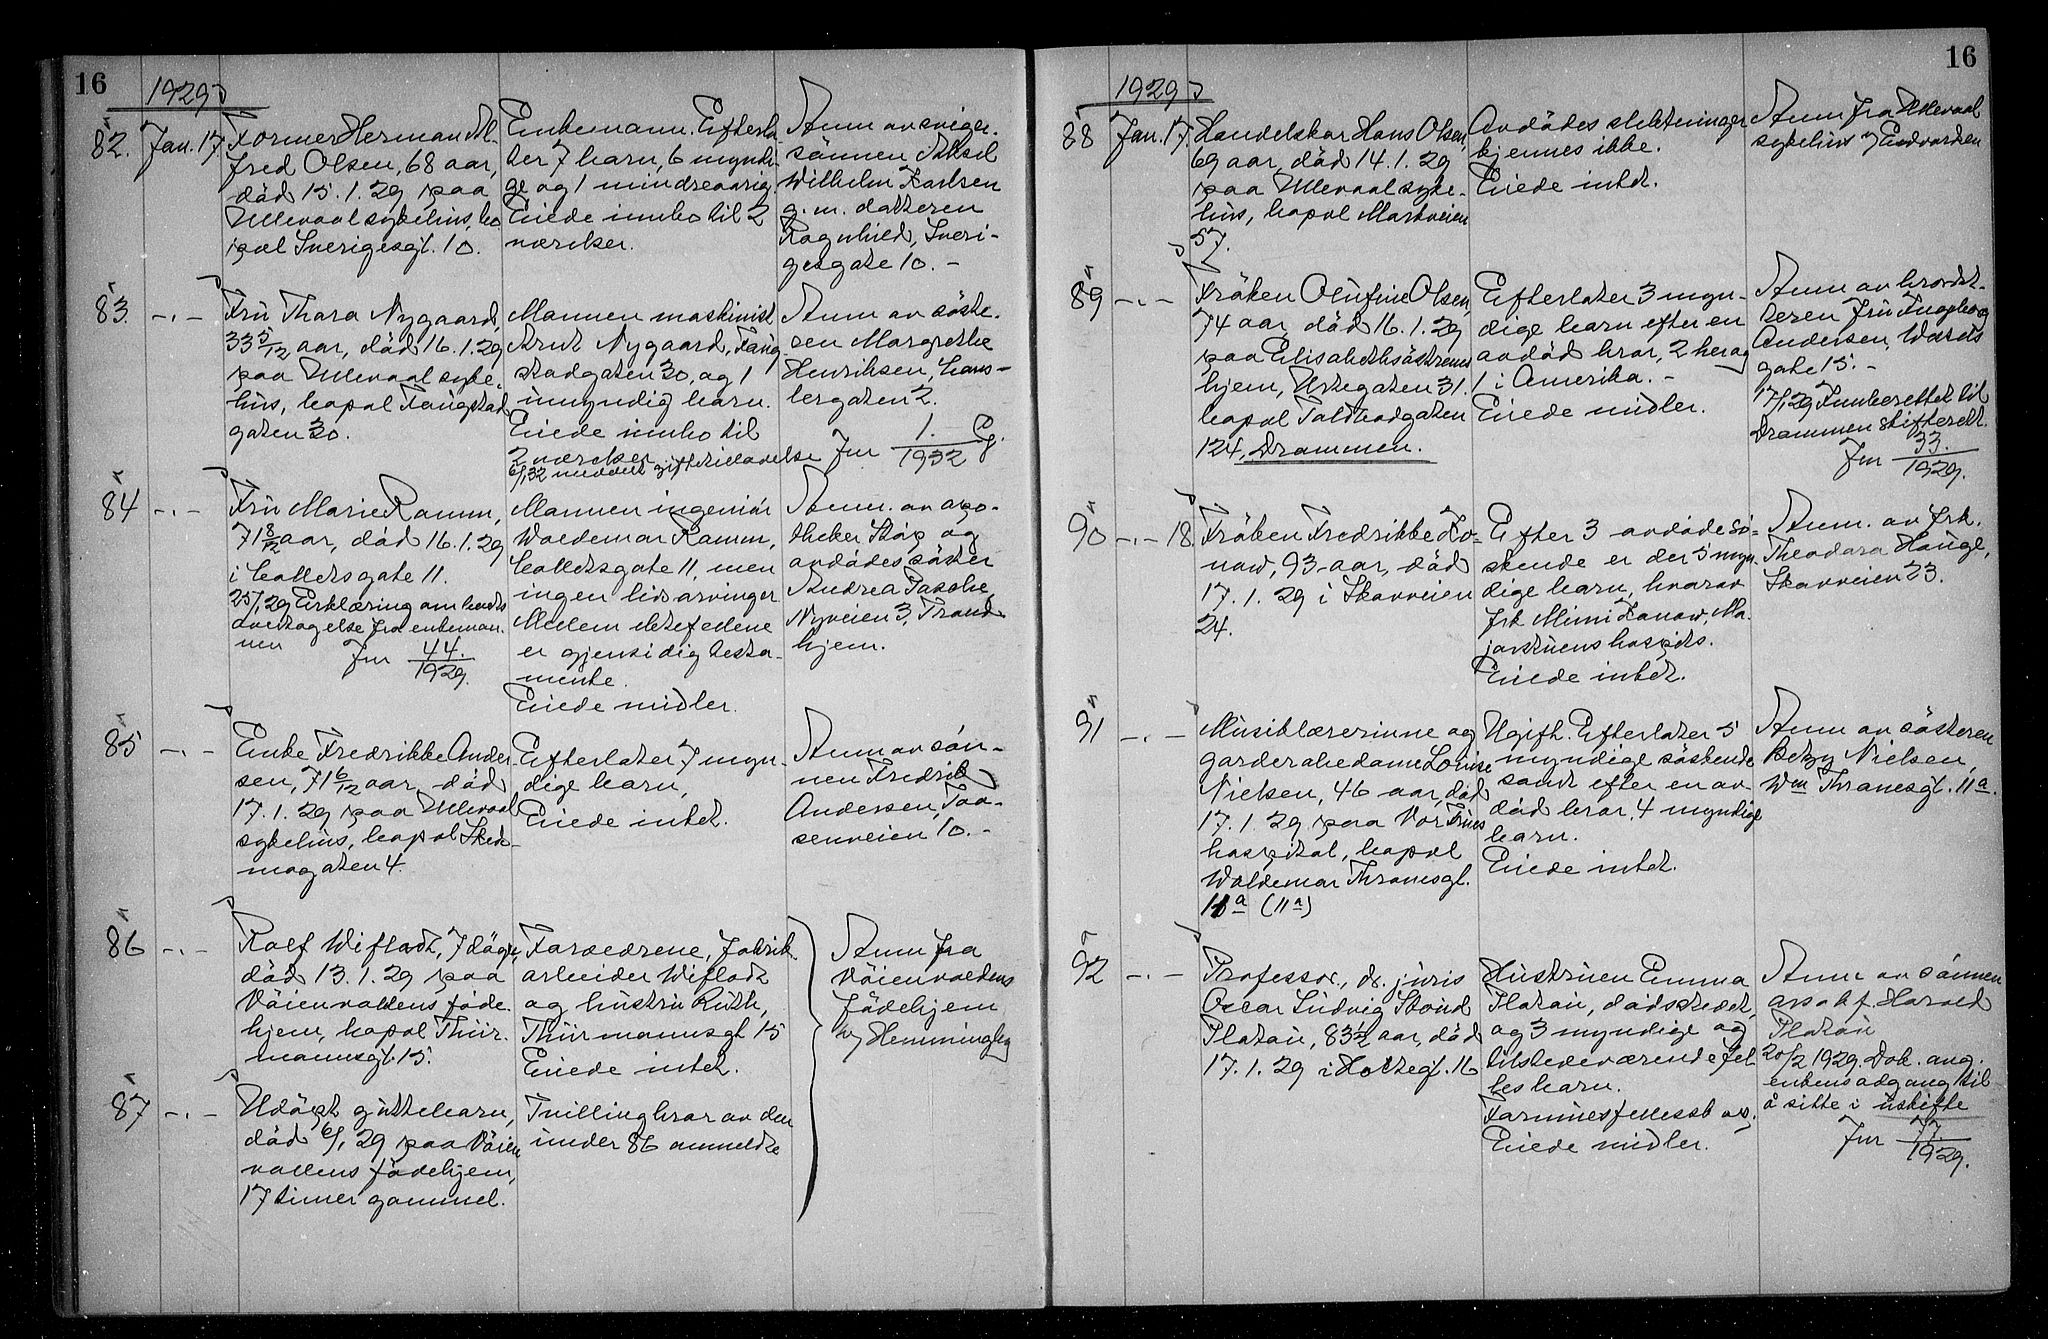 16
1929
82. Jan. 17
Former Herman Al-
fred Olsen, 68 aar,
död 15.1.29 paa
Ullevaal sykehus, bo
pæl Sverigesgt. 10.
Enkemann. Efterla-
ter 7 barn, 6 myndi-
ge og 1 mindreaarig
Eiede innbo til 2
værelser.
Anm av sviger-
sönnen Aksel
Wilhelm Karlsen
g.m. datteren
Ragnhild, Sveri-
gesgate 10. -
83. -.-
Fru Thora Nygaard,
33 5/12 aar, död 16.1.29
paa Ullevaal syke-
hus, bopæl Faugstad
gaten 30.
Mannen maskinist
Arnt Nygaard, Faug
stadgaten 30, og 1
umyndig barn.
Eiede innbo til
2 værelser
6/1 32 uteddelt skifteutlatelse Jnr 1./1932
Anm av söste-
ren Margrethe
Henriksen,
gaten 2.
84 -.-
Fru Marie Ramm,
71 8/12 aar, död 16.1.29
i Colletsgate 11.
25/1 29 Erklæring om boets
overtagelse fra enkeman-
nen Jnr 44./1929.
Mannen ingeniör
Woldemar Ramm,
Colletsgate 11, men
ingen livsarvinger
Mellem ektefellene
er gjensidig testa-
mente.
Eiede midler.
Anm. av apo-
theker Stöp og
avdödes söster
Andrea Pasche,
Nyveien 3, Trond
hjem.
85 -.-
Enke Fredrikke Ander
sen, 71 6/12 aar, död
17.1.29 paa Ullevaal
sykehus, bopæl Skeds-
mogaten 4.
Efterlater 7 myn-
dige barn,
Eiede intet.
Anm av sön-
nen Fredrik
Andersen, Taa-
senveien 10. -
86 -.-
Rolf Wifladt, 7 dage,
död 13.1.29 paa
Vöienvollens föde-
hjem, bopæl Thur-
mannsgt. 15.
Foreldrene, fabrik
arbeider Wifladt
og hustru Ruth,
Thurmannsgt 15
Eiede intet.
Anm fra
Vöienvoldens
födehjem
v/ Hemmingby
87 -.-
Udöpt guttebarn,
död 6/1 29 paa Vöien
vollens födehjem,
17 timer gammel.
Tvillingbror av den
under 86 anmeldte
16
1929
88 Jan. 17.
Handelskar Hans Olsen,
69 aar, död 14.1.29
paa Ullevaal syke-
hus, bopæl Markveien
57.
Avdödes slektninger
kjennes ikke.
Eiede intet.
Anm fra Ullevaal
sykehus v/ Endvorden
89 -.-
Fröken Olufine Olsen,
74 aar, död 16.1.29
paa Elisabethsöstrenes
hjem, Urtegaten 31.
bopæl Toldbodgaten
124, Drammen.
Efterlater 3 myn-
dige barn efter en
avdöd bror, 2 her og
1 i Amerika. -
Eiede midler.
Anm av brordat-
teren fru Ingeborg
Andersen, Wolds
gate 15. -
17/1 29 Innberettet til
Drammen skifterett.
Jnr 33./1929.
90 -.- 18.
Fröken Fredrikke Ko-
now, 93 aar, död
17.1.29 i Skovveien
24.
Efter 3 avdöde sö-
skende er der 5 myn-
dige barn, hvorav
frk Mimi Konow, Ma-
jorstuens hospits.
Eiede intet.
Anm. av frk.
Theodora Hauge,
Skovveien 23.
91 -.-
Musiklærerinne og
garderobedame Louise
Nielsen, 46 aar, död
17.1.29 paa Vor Frues
hospital, bopæl
Waldemar Thranesgt.
11a (11a)
Ugift. Efterlater 5
myndige söskende
samt efter en av-
död bror, 4 myndige
barn.
Eiede intet.
Anm av sösteren
Betzy Nielsen,
Wm Thranesgt. 11a.
92 -.-
Professor, dr. juris
Oscar Ludvig Stoud
Platou, 83 1/2 aar, död
17.1.29 i Holtegt. 16
Hustruen Emma
Platou, dödsstedet,
og 3 myndige og
tilstedeværende fel-
les barn.
Formuesfellessk. av.
Eiede midler.
Anm av sönnen
o.r.sakf. Harald
Platou
20/2 1929. Dok. ang.
enkens adgang til
å sitte i uskifte
Jnr 77./1929.